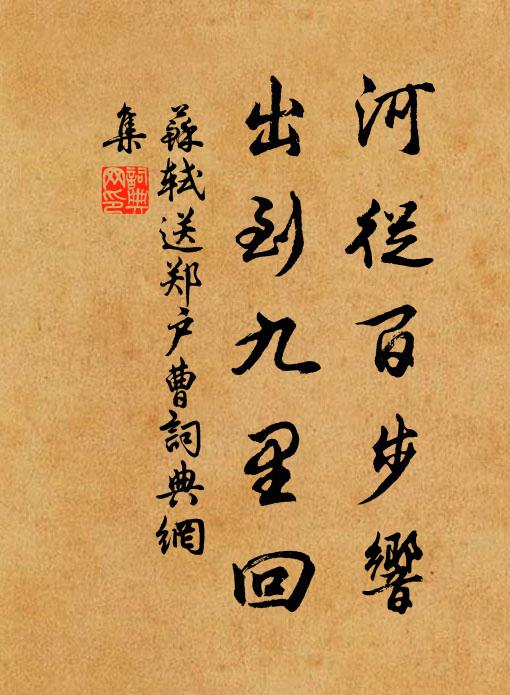 河從百步響
出到九里回
蘇軾送郑户曹詞典網
集
詞典
网印